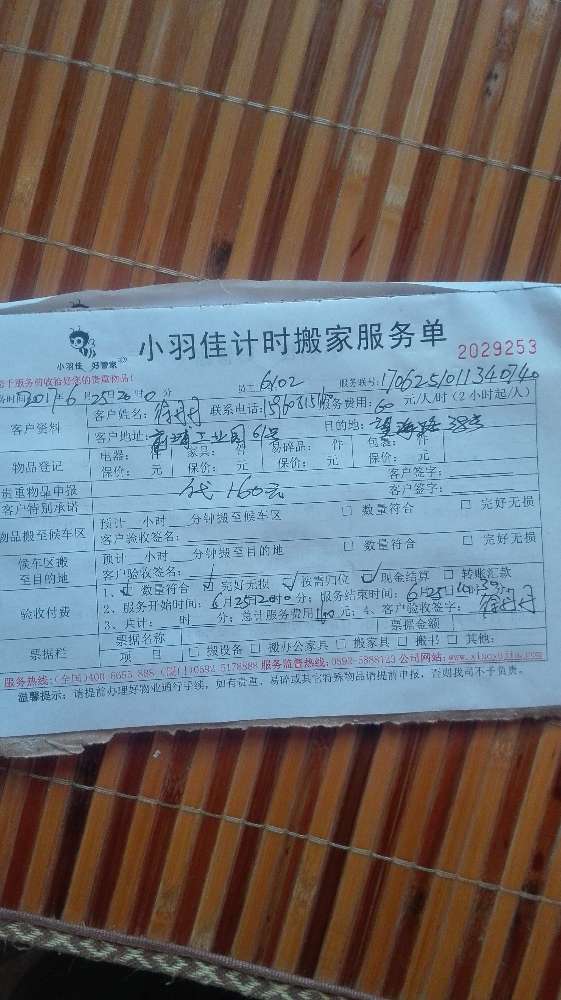 小羽佳 好管家
小羽佳计时搬家服务单
2029253
员工 6102 服务联号: 170625101134
时间 2017年6月25日20时0分
客户资料 客户姓名: 联系电话: 服务费用: 60 元/人/时 (2小时起/人)
客户地址: 前埔工业园61号 目的地: 望海路38号
物品登记 电器: 件 家具: 件 易碎品: 件 包装: 件
保价: 元 保价: 元 保价: 元 保价: 元
贵重物品申报 客户签字:
客户特别承诺 代160元 客户签字:
物品搬至候车区 预计 小时 分钟搬至候车区 □ 数量符合 □ 完好无损
客户验收签名:
候车区搬至目的地 预计 小时 分钟搬至目的地 □ 数量符合 □ 完好无损
客户验收签名:
验收付费 1、☑ 数量符合 ☑ 完好无损 ☑ 按需归位 ☑ 现金结算 □ 转账汇款
2、服务开始时间: 6月25日 分; 服务结束时间: 6月25日 分;
3、共计: 时 分; 总计服务费用 元; 4、客户验收签字:
票据栏 票据名称 票据金额
项 目 □ 搬设备 □ 搬办公家具 □ 搬家具 □ 搬书 □ 其他:
服务热线: (全国)400-6655-888 (厦门)0592-5178888 服务监督热线: 0592-5888123 公司网站: www.xiaoyujia.com
温馨提示: 请提前办理好物业通行手续, 如有贵重、易碎或其它特殊物品请提前申报, 否则我司不予负责。